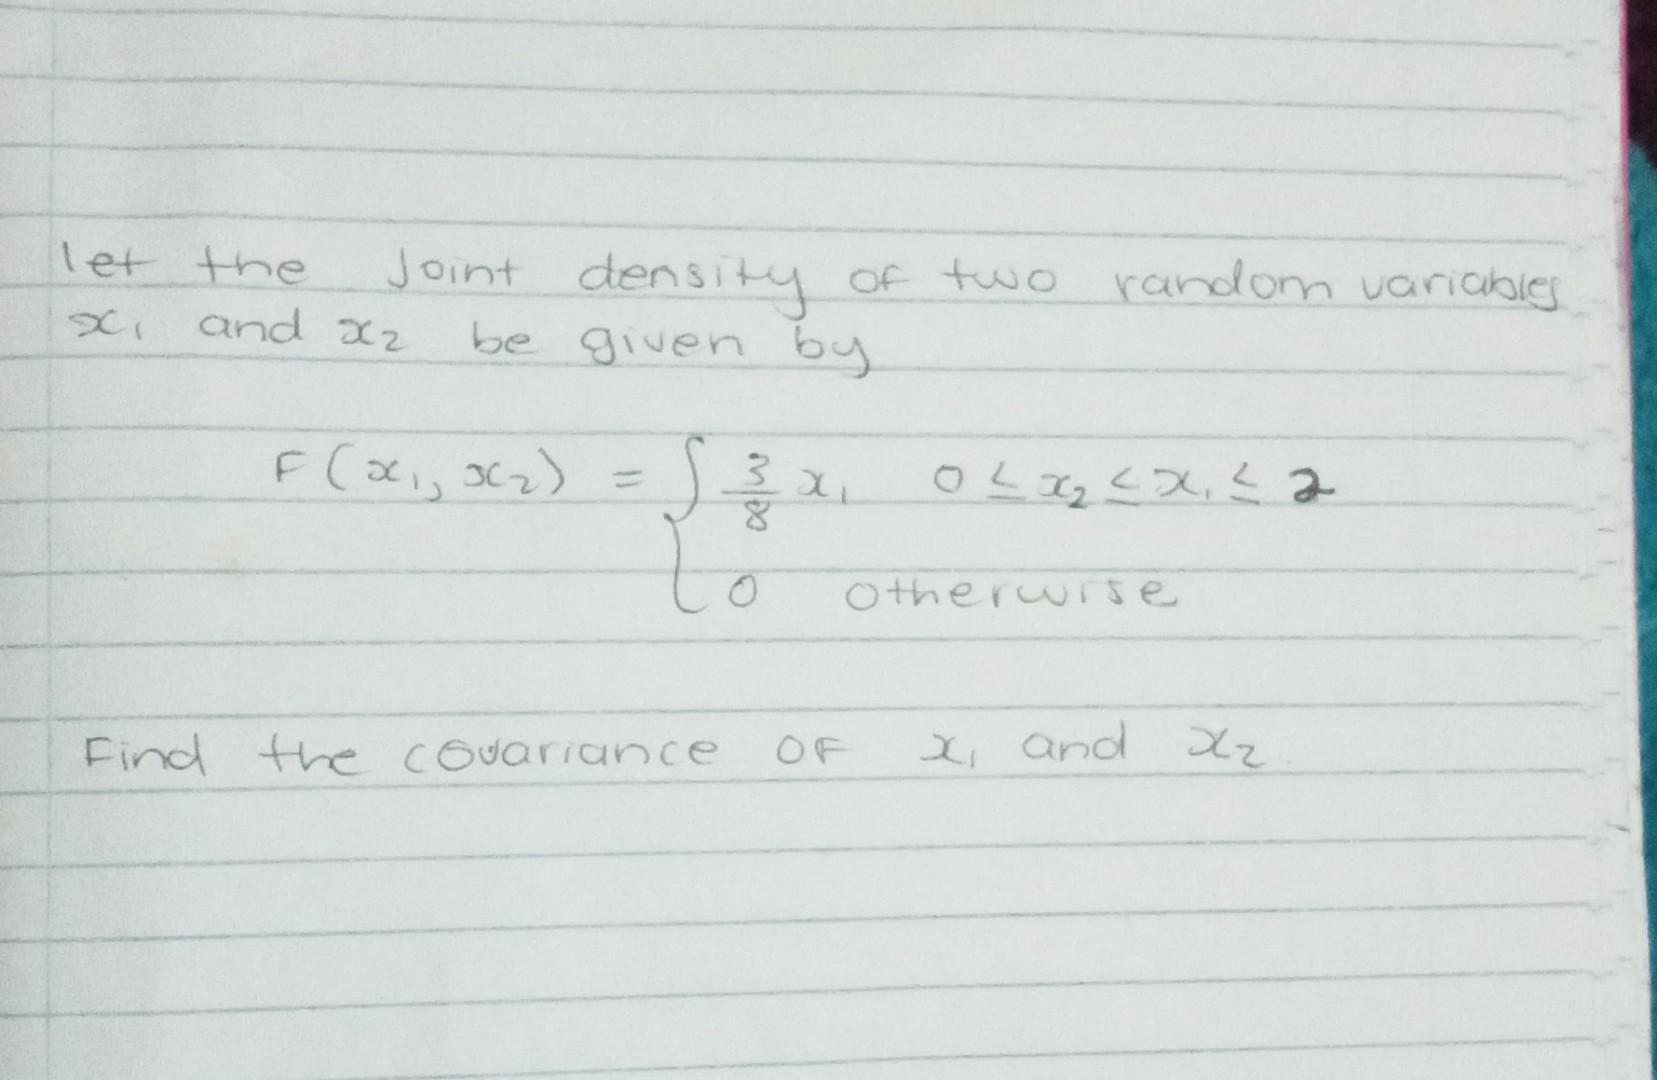 let the Joint density of two random variables
x₁ and x₂ be given by
F(x₁, x₂) = { 3/8 x₁ 0 ≤ x₂ ≤ x₁ ≤ 2
0 otherwise
Find the covariance OF x₁ and x₂